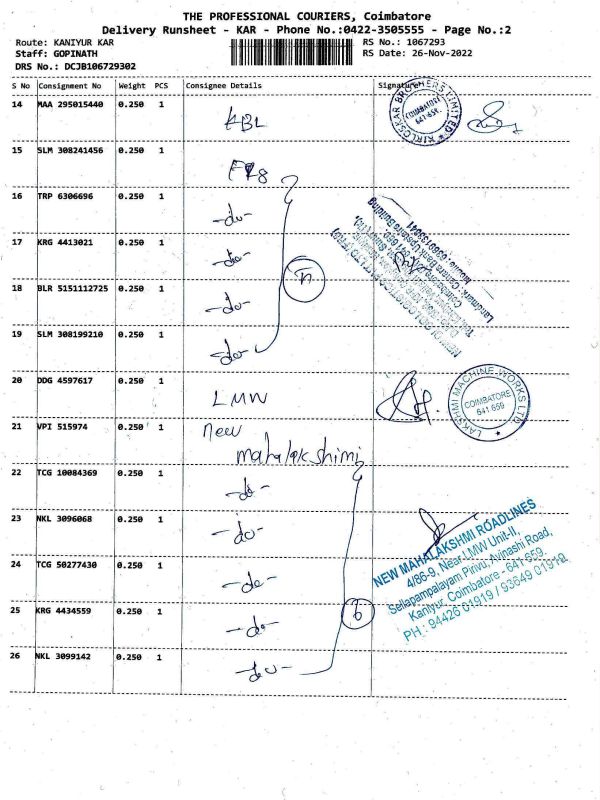 THE PROFESSIONAL COURIERS, Coimbatore
Delivery Runsheet - KAR - Phone No.:0422-3505555 - Page No.:2
Route: KANIYUR KAR RS No.: 1067293
Staff: GOPINATH RS Date: 26-Nov-2022
DRS No.: DCJB106729302
S No Consignment No Weight PCS Consignee Details Signature
14 MAA 295015440 0.250 1 KBL
KIRLOSKAR BROTHERS LIMITED
COIMBATORE
641-659.
15 SLM 308241456 0.250 1
16 TRP 6306696 0.250 1 -do-
17 KRG 4413021 0.250 1 -do-
18 BLR 5151112725 0.250 1 -do-
19 SLM 308199210 0.250 1 -do-
20 DDG 4597617 0.250 1 LMW
LAKSHMI MACHINE WORKS LTD
COIMBATORE
641 659
21 VPI 515974 0.250 1 New
mahalakshimi
22 TCG 10084369 0.250 1 -do-
23 NKL 3096068 0.250 1 -do-
24 TCG 50277430 0.250 1 -do-
25 KRG 4434559 0.250 1 -do-
26 NKL 3099142 0.250 1 -do-
6
NEW MAHALAKSHMI ROADLINES
4/86-9, Near LMW Unit-II,
Sellapampalayam Pirivu, Avinashi Road,
Kaniyur, Coimbatore - 641 659.
PH : 94426 01919 / 93649 01919